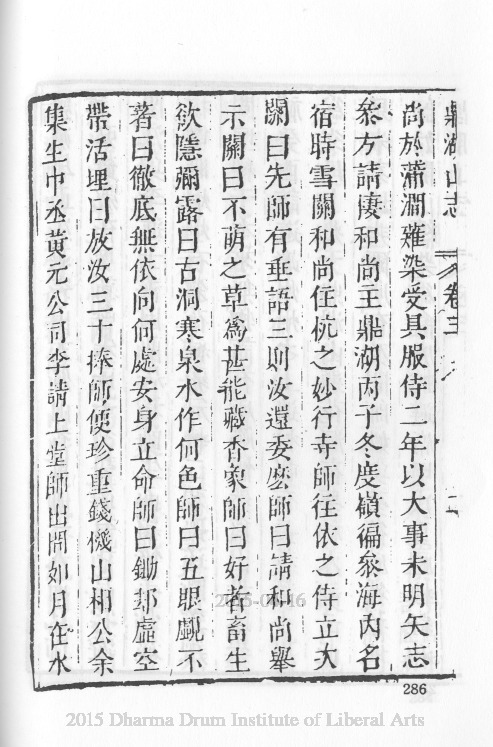 鼎湖山志 卷三 二
尚於蒲澗薙染受具服侍二年以大事未明矢志
參方請棲和尚主鼎湖丙子冬度嶺徧參海內名
宿時雪關和尚住杭之妙行寺師往依之侍立次
關曰先師有垂語三則汝還委麼師曰請和尚舉
示關曰不萌之草爲甚能藏香象師曰好箇畜生
飲隱彌露曰古洞寒泉水作何色師曰五眼覷不
著曰徹底無依向何處安身立命師曰鋤却虛空
帶活埋曰放汝三十捧師便珍重錢機山相公余
集生中丞黃元公司李請上堂師出問如月在水
2015-06-16
286
2015 Dharma Drum Institute of Liberal Arts